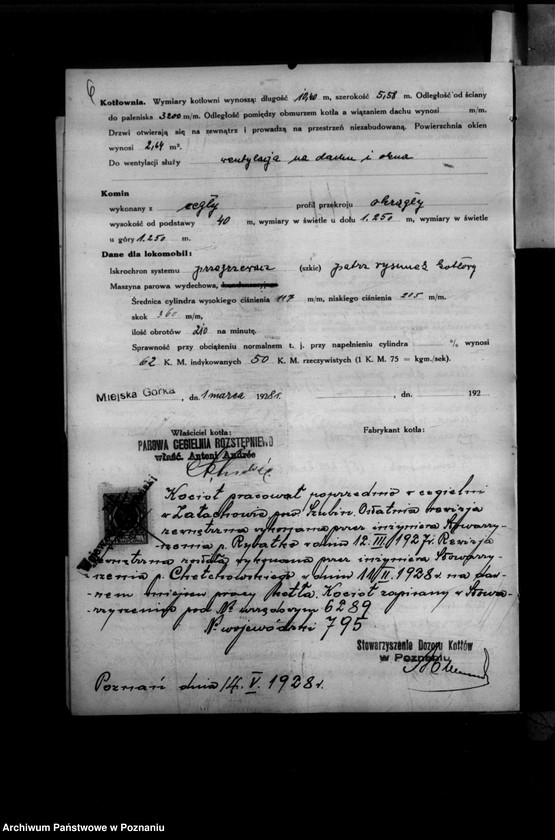 6
Kotłownia. Wymiary kotłowni wynoszą: długość 10,40 m, szerokość 5,58 m. Odległość od ściany
do paleniska 3200 m/m. Odległość pomiędzy obmurzem kotła a wiązaniem dachu wynosi m/m.
Drzwi otwierają się na zewnątrz i prowadzą na przestrzeń niezabudowaną. Powierzchnia okien
wynosi 2,64 m².
Do wentylacji służy wentylacja na dachu i okna
Komin
wykonany z cegły profil przekroju okrągły
wysokość od podstawy 40 m, wymiary w świetle u dołu 1.250 m, wymiary w świetle
u góry 1.250 m.
Dane dla lokomobil:
Iskrochron systemu (szkic) patrz rysunek kotłowy
Maszyna parowa wydechowa,
Średnica cylindra wysokiego ciśnienia 117 m/m, niskiego ciśnienia 205 m/m.
skok 360 m/m,
ilość obrotów 210 na minutę.
Sprawność przy obciążeniu normalnem t. j. przy napełnieniu cylindra % wynosi
62 K. M. indykowanych 50 K. M. rzeczywistych (1 K. M. 75 = kgm./sek).
Miejska Górka, dn. 1 marca 1928 r. , dn. 192
Właściciel kotła: Fabrykant kotła:
PAROWA CEGIELNIA ROZSTĘPNIEWO
właśc. Antoni Andrée
Kocioł pracował poprzednio w cegielni
w Zalachowie pod Szubin. Ostatnia rewizja
zewnętrzna wykonana przez inżyniera Stowarzy-
szenia p. Rybatko w dniu 12.III.1927 r. Rewizja
wewnętrzna została wykonana przez inżyniera Stowarzy-
szenia p. Chelchowskiego w dniu 11.II.1928 r. na daw-
nem miejscu pracy kotła. Kocioł zapisany w Stowa-
rzyszeniu pod № wrzędowym 6289
№ wojewódzki 795
Stowarzyszenie Dozoru Kotłów
w Poznaniu
Poznań dnia 14. V. 1928 r.
Archiwum Państwowe w Poznaniu